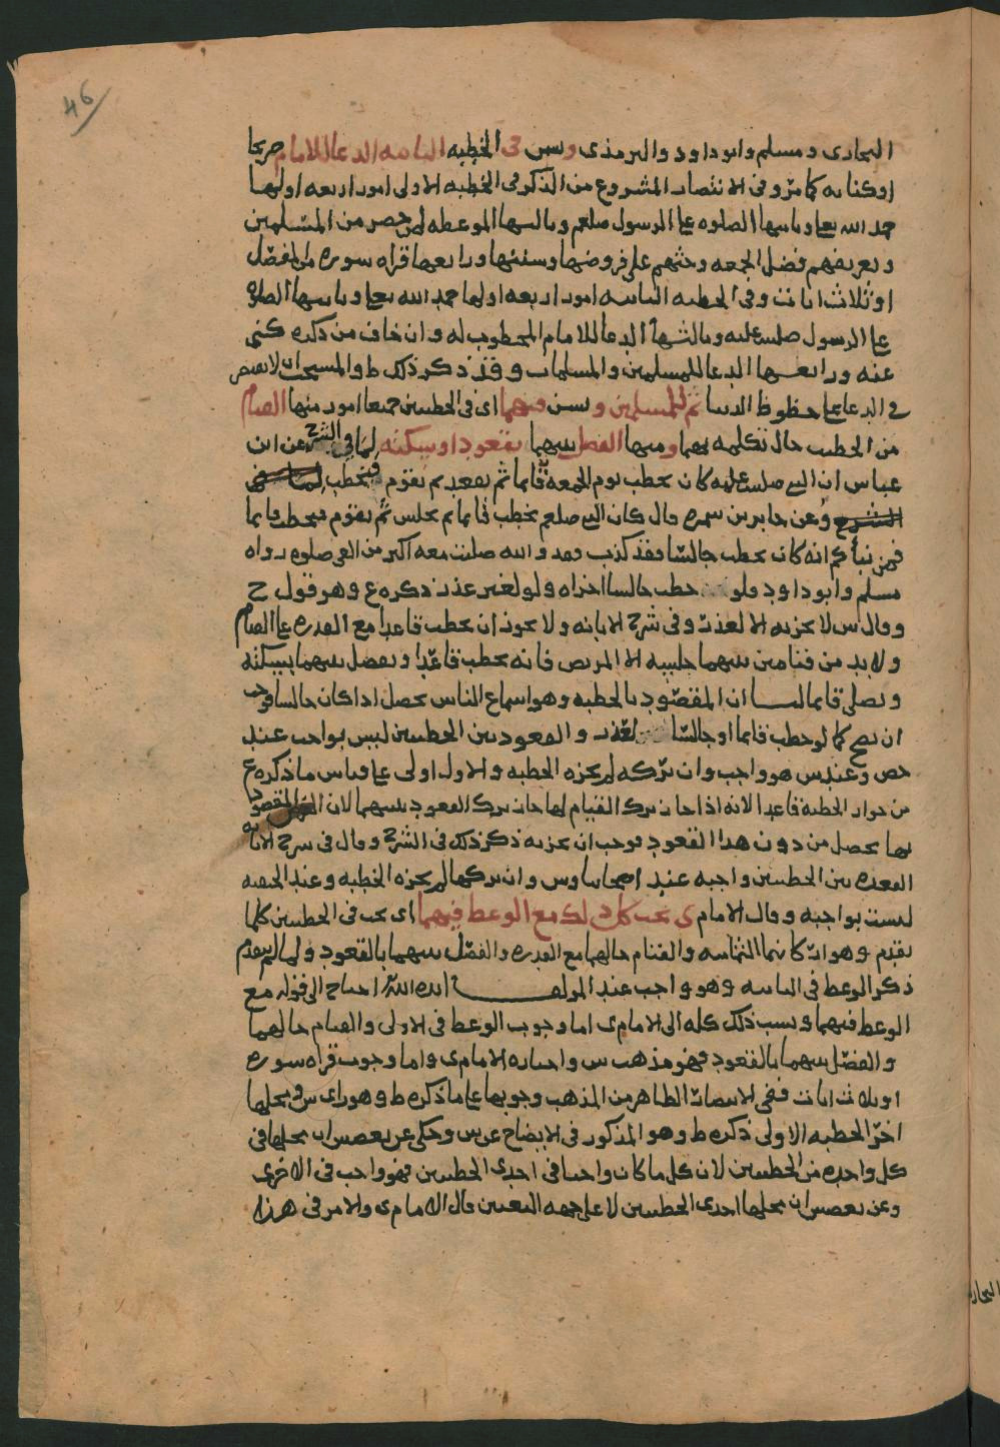 46
البخاري ومسلم وابوداود والترمذي وسن في الخطبه الثانيه الدعا للامام صريحا
او كنايه كما مر وفي الانتصار المشروع من الذكر في الخطبه الاولى امور اربعه اولها
حمد الله تعا وثانيها الصلوه على الرسول صلعم وثالثها الموعظه لمن حضر من المسلمين
وتعريفهم فضل الجمعه وحثهم على فروضها وسننها ورابعها قراه سوره من المفصل
او ثلاث ايات وفي الخطبه الثانيه امور اربعه اولها حمد الله تعا وثانيها الصلوه
على الرسول صلى الله عليه وثالثها الدعا للامام المخطوب له وان خاف من ذكره كنى
عنه ورابعها الدعا للمسلمين والمسلمات وقد ذكر ذلك ط والمستحب ان لا يقتصر
في الدعا على حظوظ الدنيا ثم للمسلمين وسن فيهما اي في الخطبتين جميعا امور منها القيام
من الخطيب حال تكلمه بهما ومنها الفصل بينهما بقعود او سكته لما في الشرح عن ابن
عباس ان النبي صلى الله عليه كان يخطب يوم الجمعه قايما ثم يقعد ثم يقوم فيخطب
وعن جابر بن سمره قال كان النبي صلعم يخطب قايما ثم يجلس ثم يقوم فيخطب قايما
فمن نبأكم انه كان يخطب جالسا فقد كذب فقد والله صليت معه اكثر من الفي صلوه رواه
مسلم وابو داود فلو خطب جالسا اجزاه ولو لغير عذر ذكره ع وهو قول ح
وقال س لا يجزيه الا لعذر وفي شرح الابانه ولا يجوز ان يخطب قاعدا مع القدره على القيام
ولا بد من قيامين بينهما جلسه الا المريض فانه يخطب قاعدا ويفصل بينهما بسكته
ويصلي قايما لنا ان المقصود بالخطبه وهو اسماع الناس يحصل اذا كان جالسا فوجب
ان يصح كما لو خطب قايما او جالسا لعذر والقعود بين الخطبتين ليس بواجب عند
حص وعند س هو واجب وان تركه لم يجزه الخطبه والاول اولى على قياس ما ذكره ع
من جواز الخطبه قاعدا لانه اذا جاز ترك القيام لها جاز ترك القعود بينهما لان المقصود
بها يحصل من دون هذا القعود فوجب ان يجزيه ذكر ذلك في الشرح وقال في شرح الابانه
القعده بين الخطبتين واجبه عند اصحابنا وس وان تركها لم يجزه الخطبه وعند الحنفيه
ليست بواجبه وقال الامام ي يجب كل ذلك مع الوعظ فيهما اي يجب في الخطبتين كلما
تقدم وهو اركانهما الثمانيه والقيام حالهما مع القدره والفصل بينهما بالقعود ولما لم يتقدم
ذكر الوعظ في الثانيه وهو واجب عند المولف ايده الله احتاج الى قوله مع
الوعظ فيهما ونسب ذلك كله الى الامام ي اما وجوب الوعظ في الاولى والقيام حالهما
والفصل بينهما بالقعود فهو مذهب س واختاره الامام ي واما وجوب قراه سوره
او ثلاث ايات ففي الانتصار الظاهر من المذهب وجوبها على ما ذكره ط وهو راي س ومحلها
اخر الخطبه الاولى ذكره ط وهو المذكور في الايضاح عن س وحكى عن بعضهم ان محلها في
كل واحده من الخطبتين لان كل ما كان واجبا في احدى الخطبتين فهو واجب في الاخرى
وعن بعضهم ان محلها احدى الخطبتين لا على جهه التعيين قال الامام ي والامر في هذه